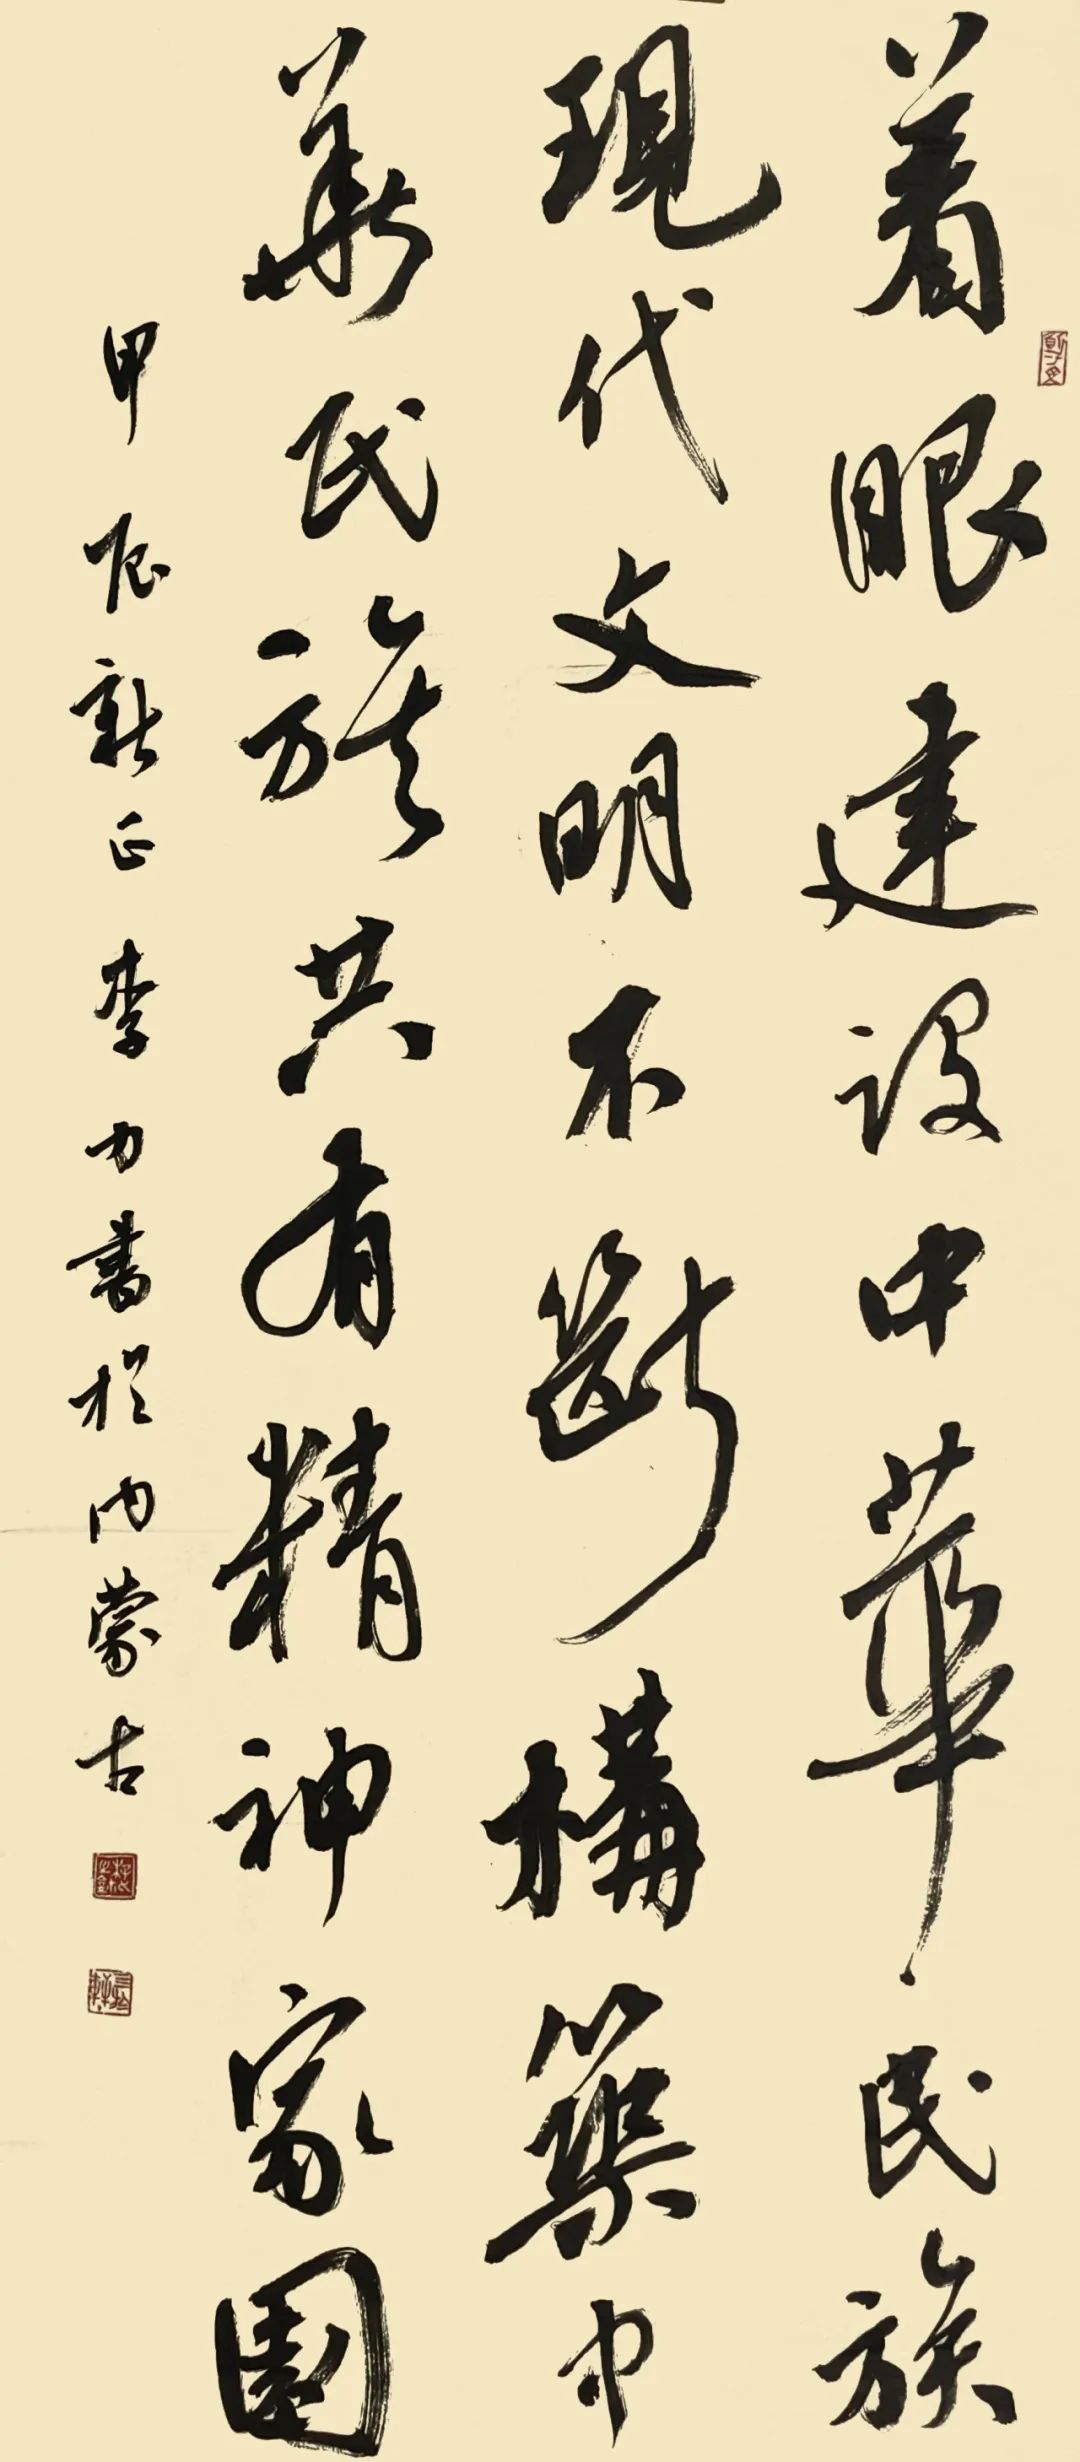 着眼建设中華民族
現代文明不斷構築中
華民族共有精神家園
甲辰新正李力書於内蒙古